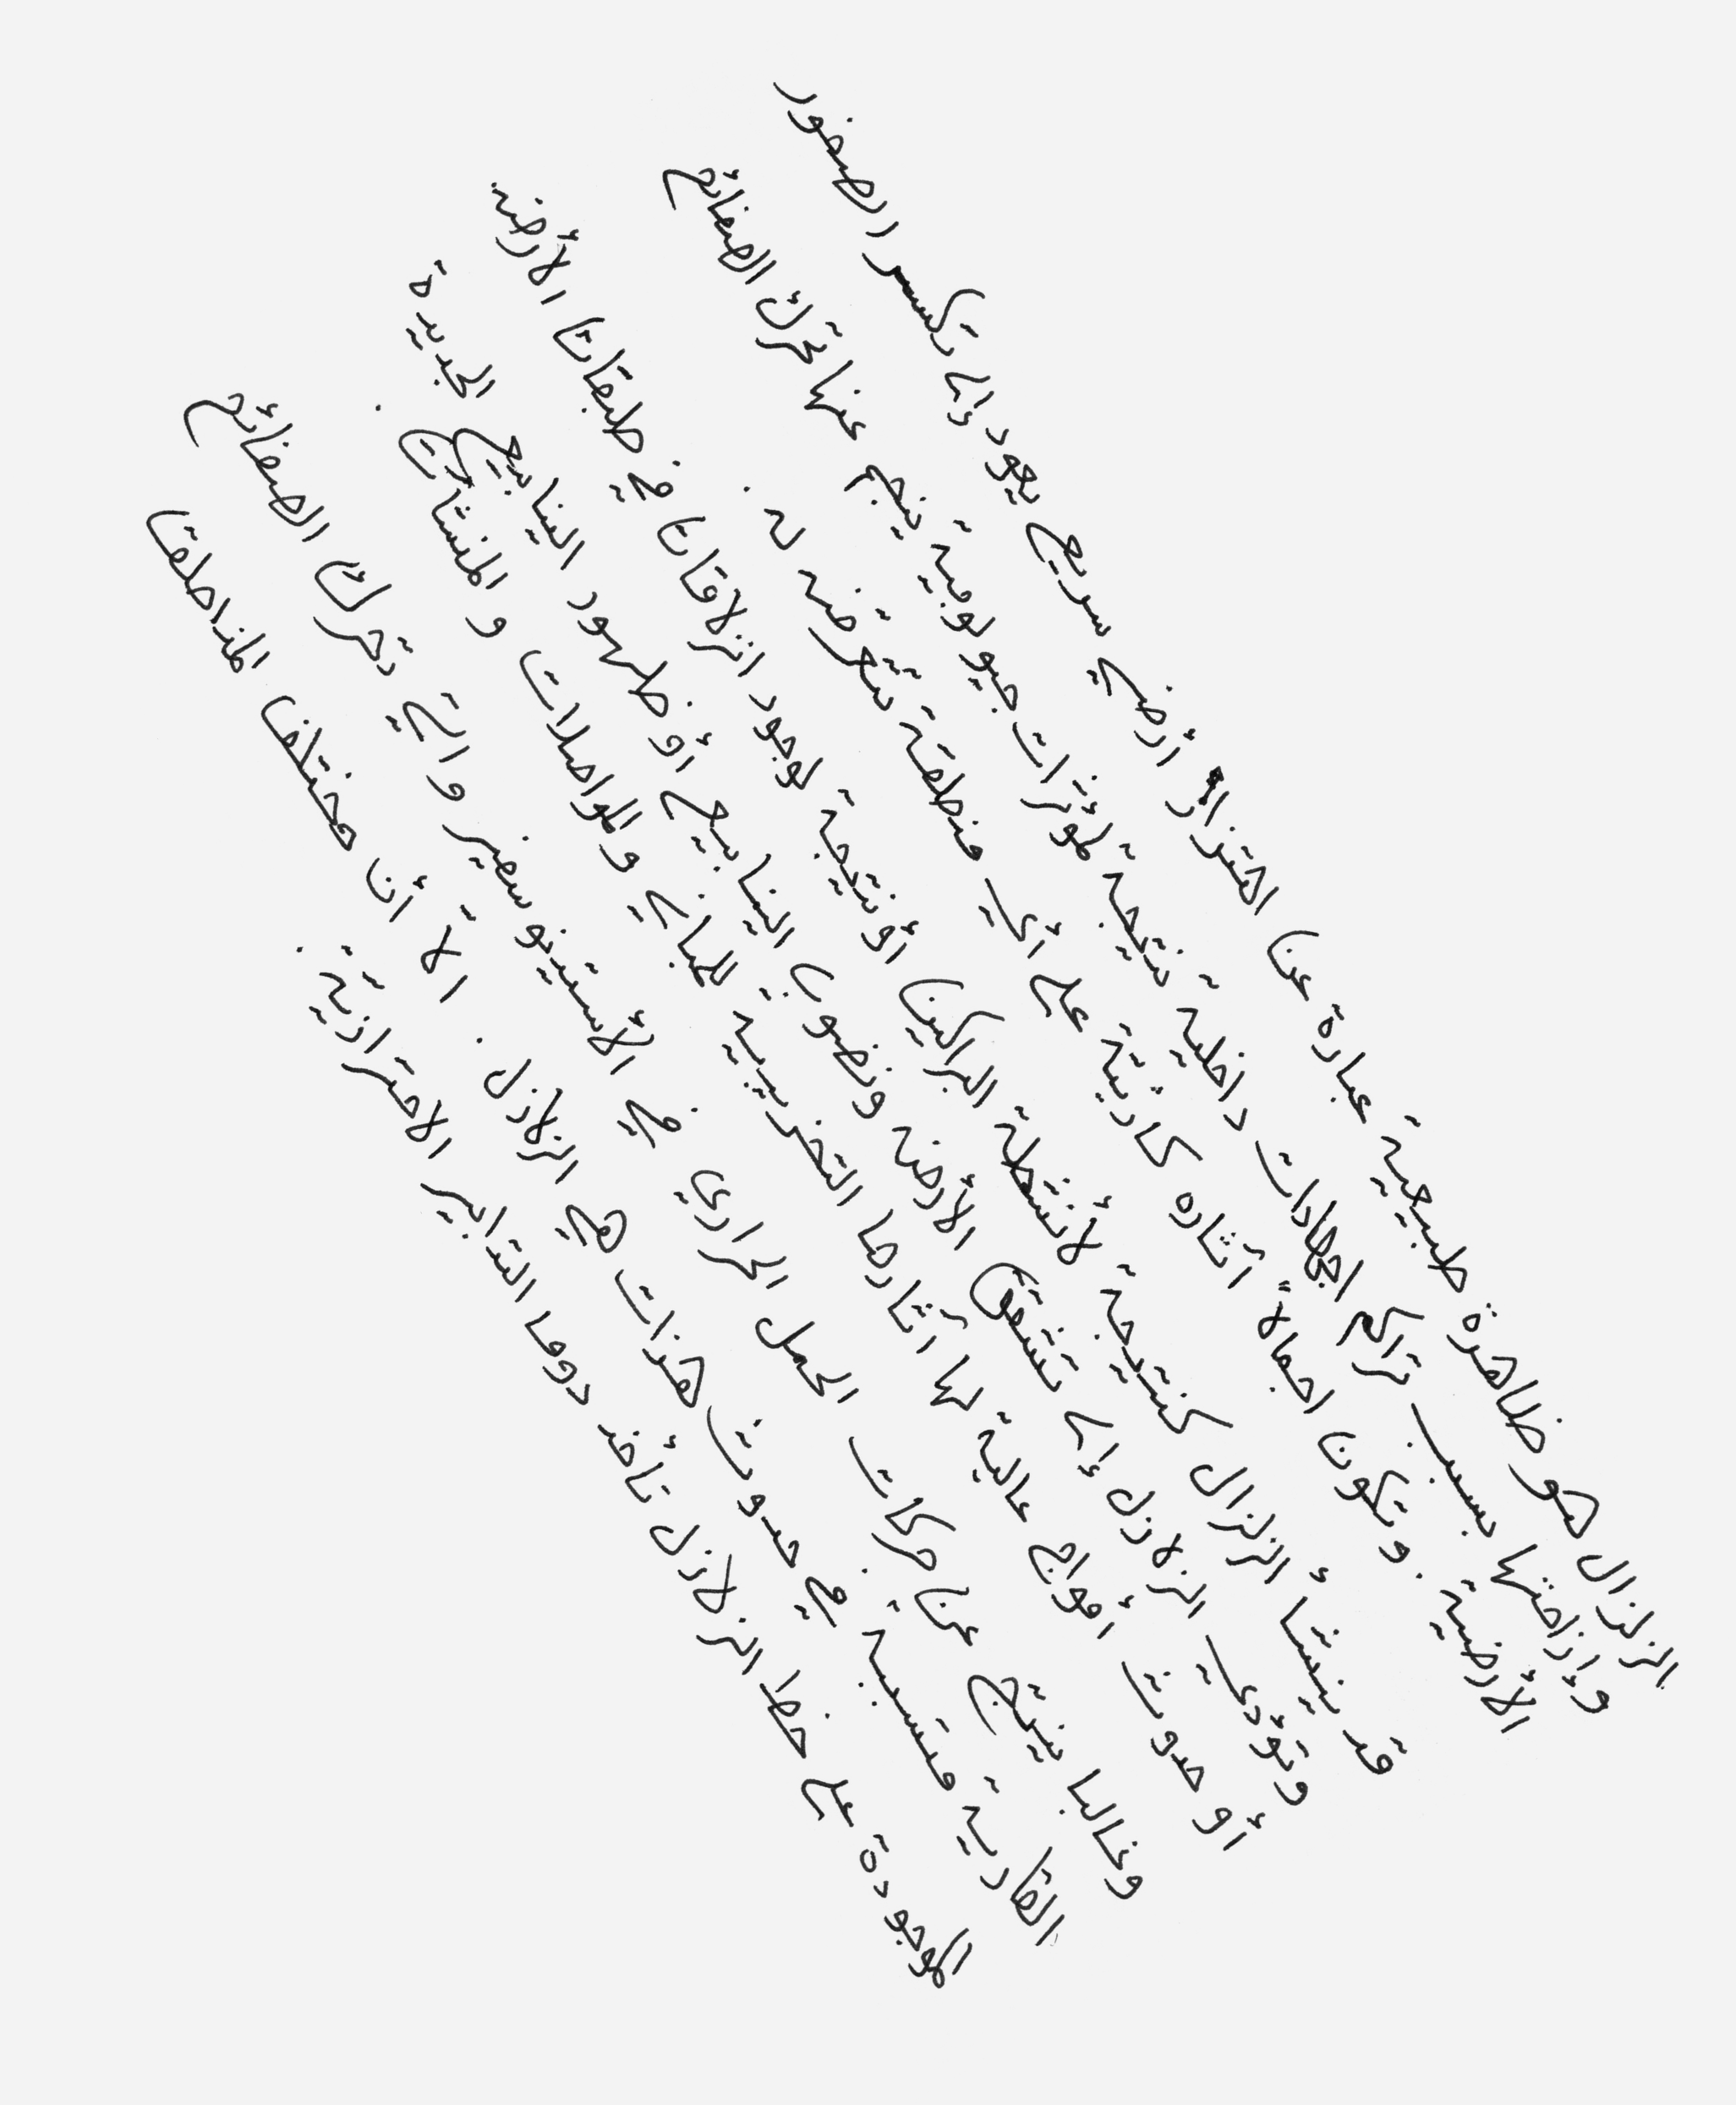 الزلزال هو ظاهرة طبيعية عبارة عن اهتزاز أرضي سريع يعود إلى تكسر الصخور
وإزاحتها بسبب تراكم اجهادات داخلية نتيجة لمؤثرات جيولوجية ينجم عنها تحرك الصفائح
الأرضية. وتكون اجمالاً آثاره كارثية على أي منطقة تتعرض له.
قد ينشأ الزلزال كنتيجة لأنشطة البراكين أو نتيجة لوجود انزلاقات في طبقات الأرض.
وتؤدي الزلازل إلى تشقق الأرض ونضوب الينابيع أو ظهور الينابيع الجديدة
أو حدوث أمواج عالية لها آثارها التخريبية للمباني والمواصلات و المنشآت.
وغالبا ينتج عن حركات الحمل الحراري في الأستينوسفير والتي تحرك الصفائح
القارية متسببة في حدوث هزات هي الزلازل. الا أن مختلف المناطق
الموجودة على خط الزلازل تأخذ دوما التدابير الاحترازية.